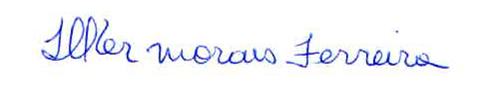 Ilker morais Ferreira